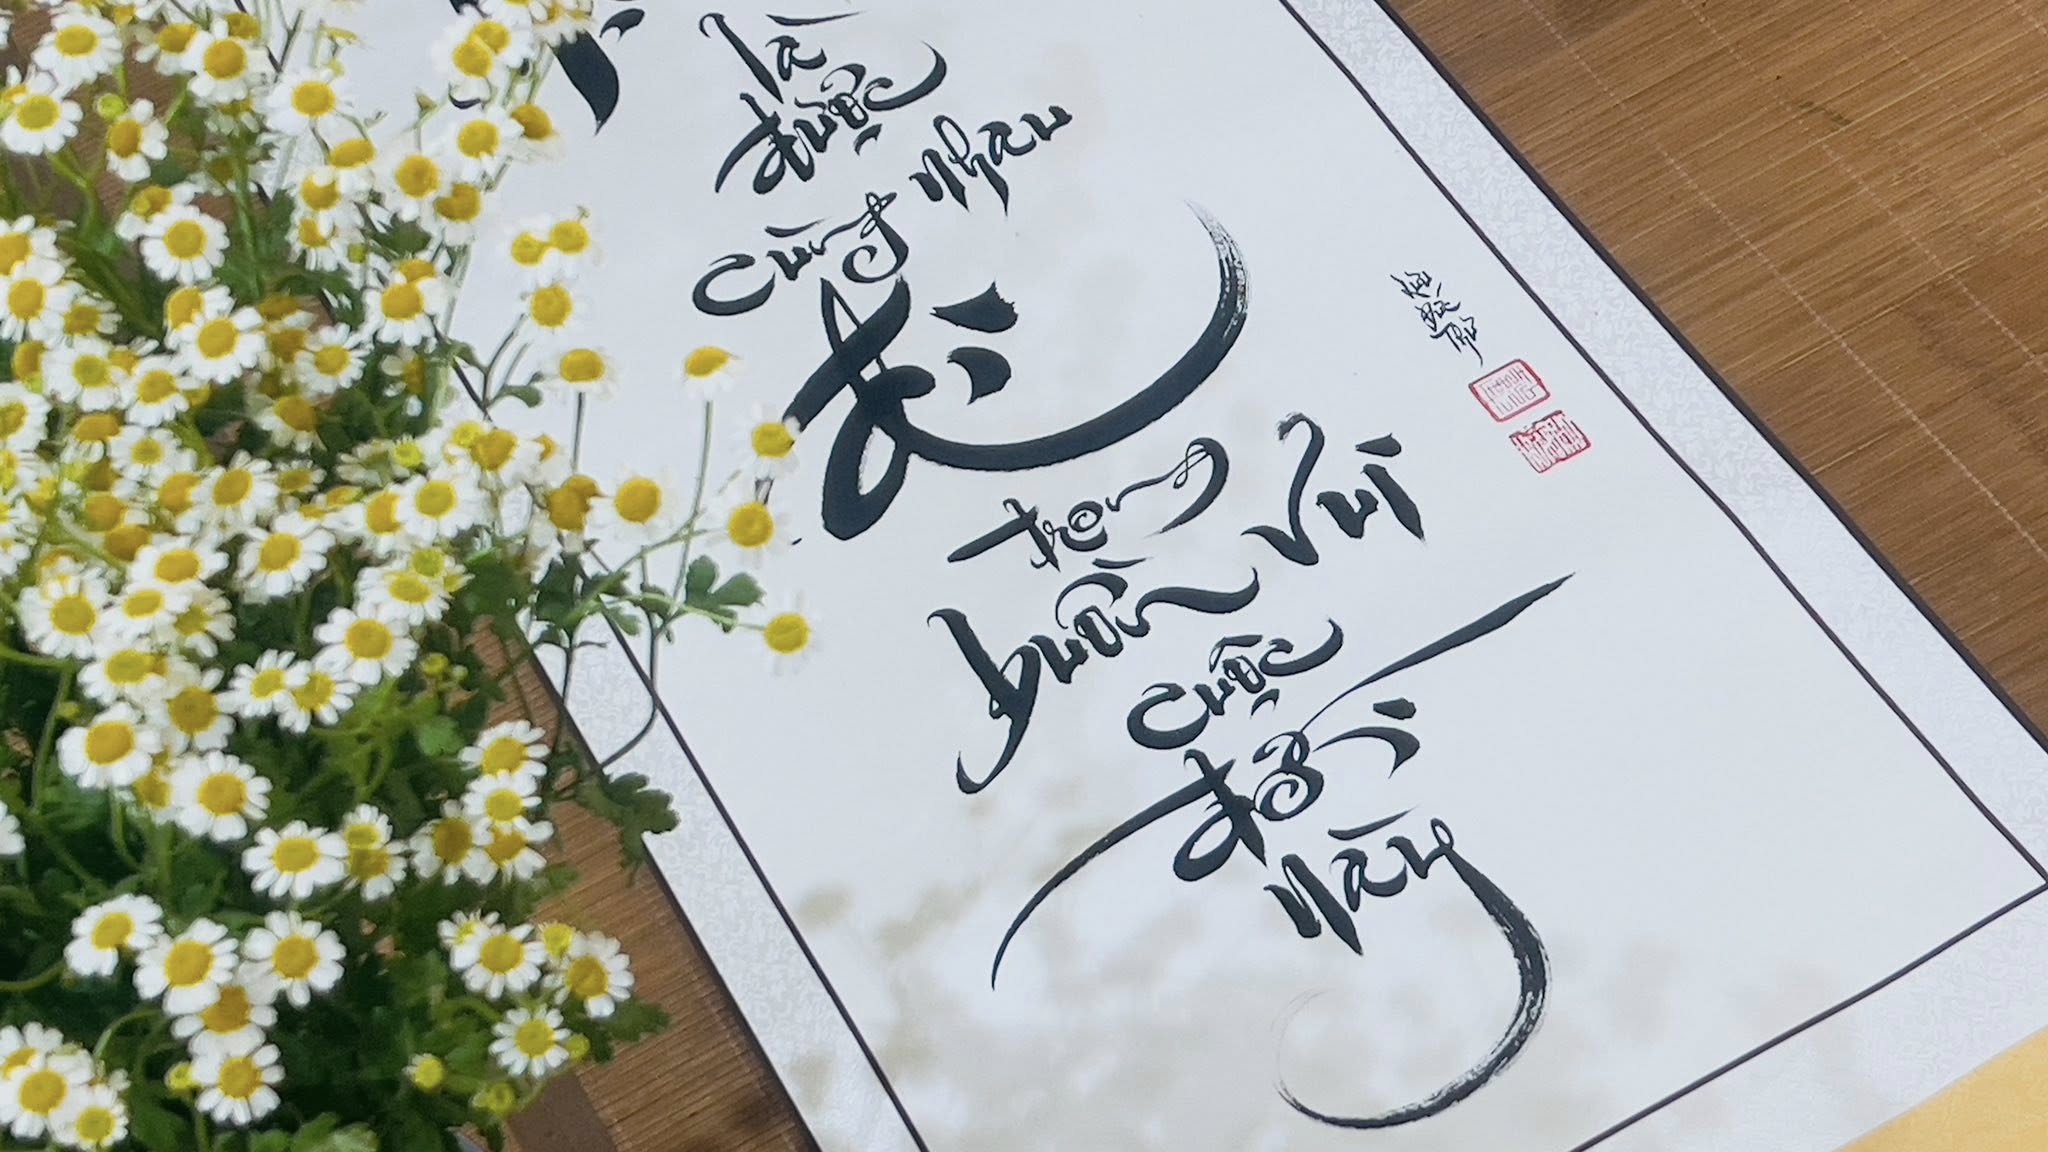 là
được
cùng nhau
đi
trong
buồn vui
cuộc
đời
này